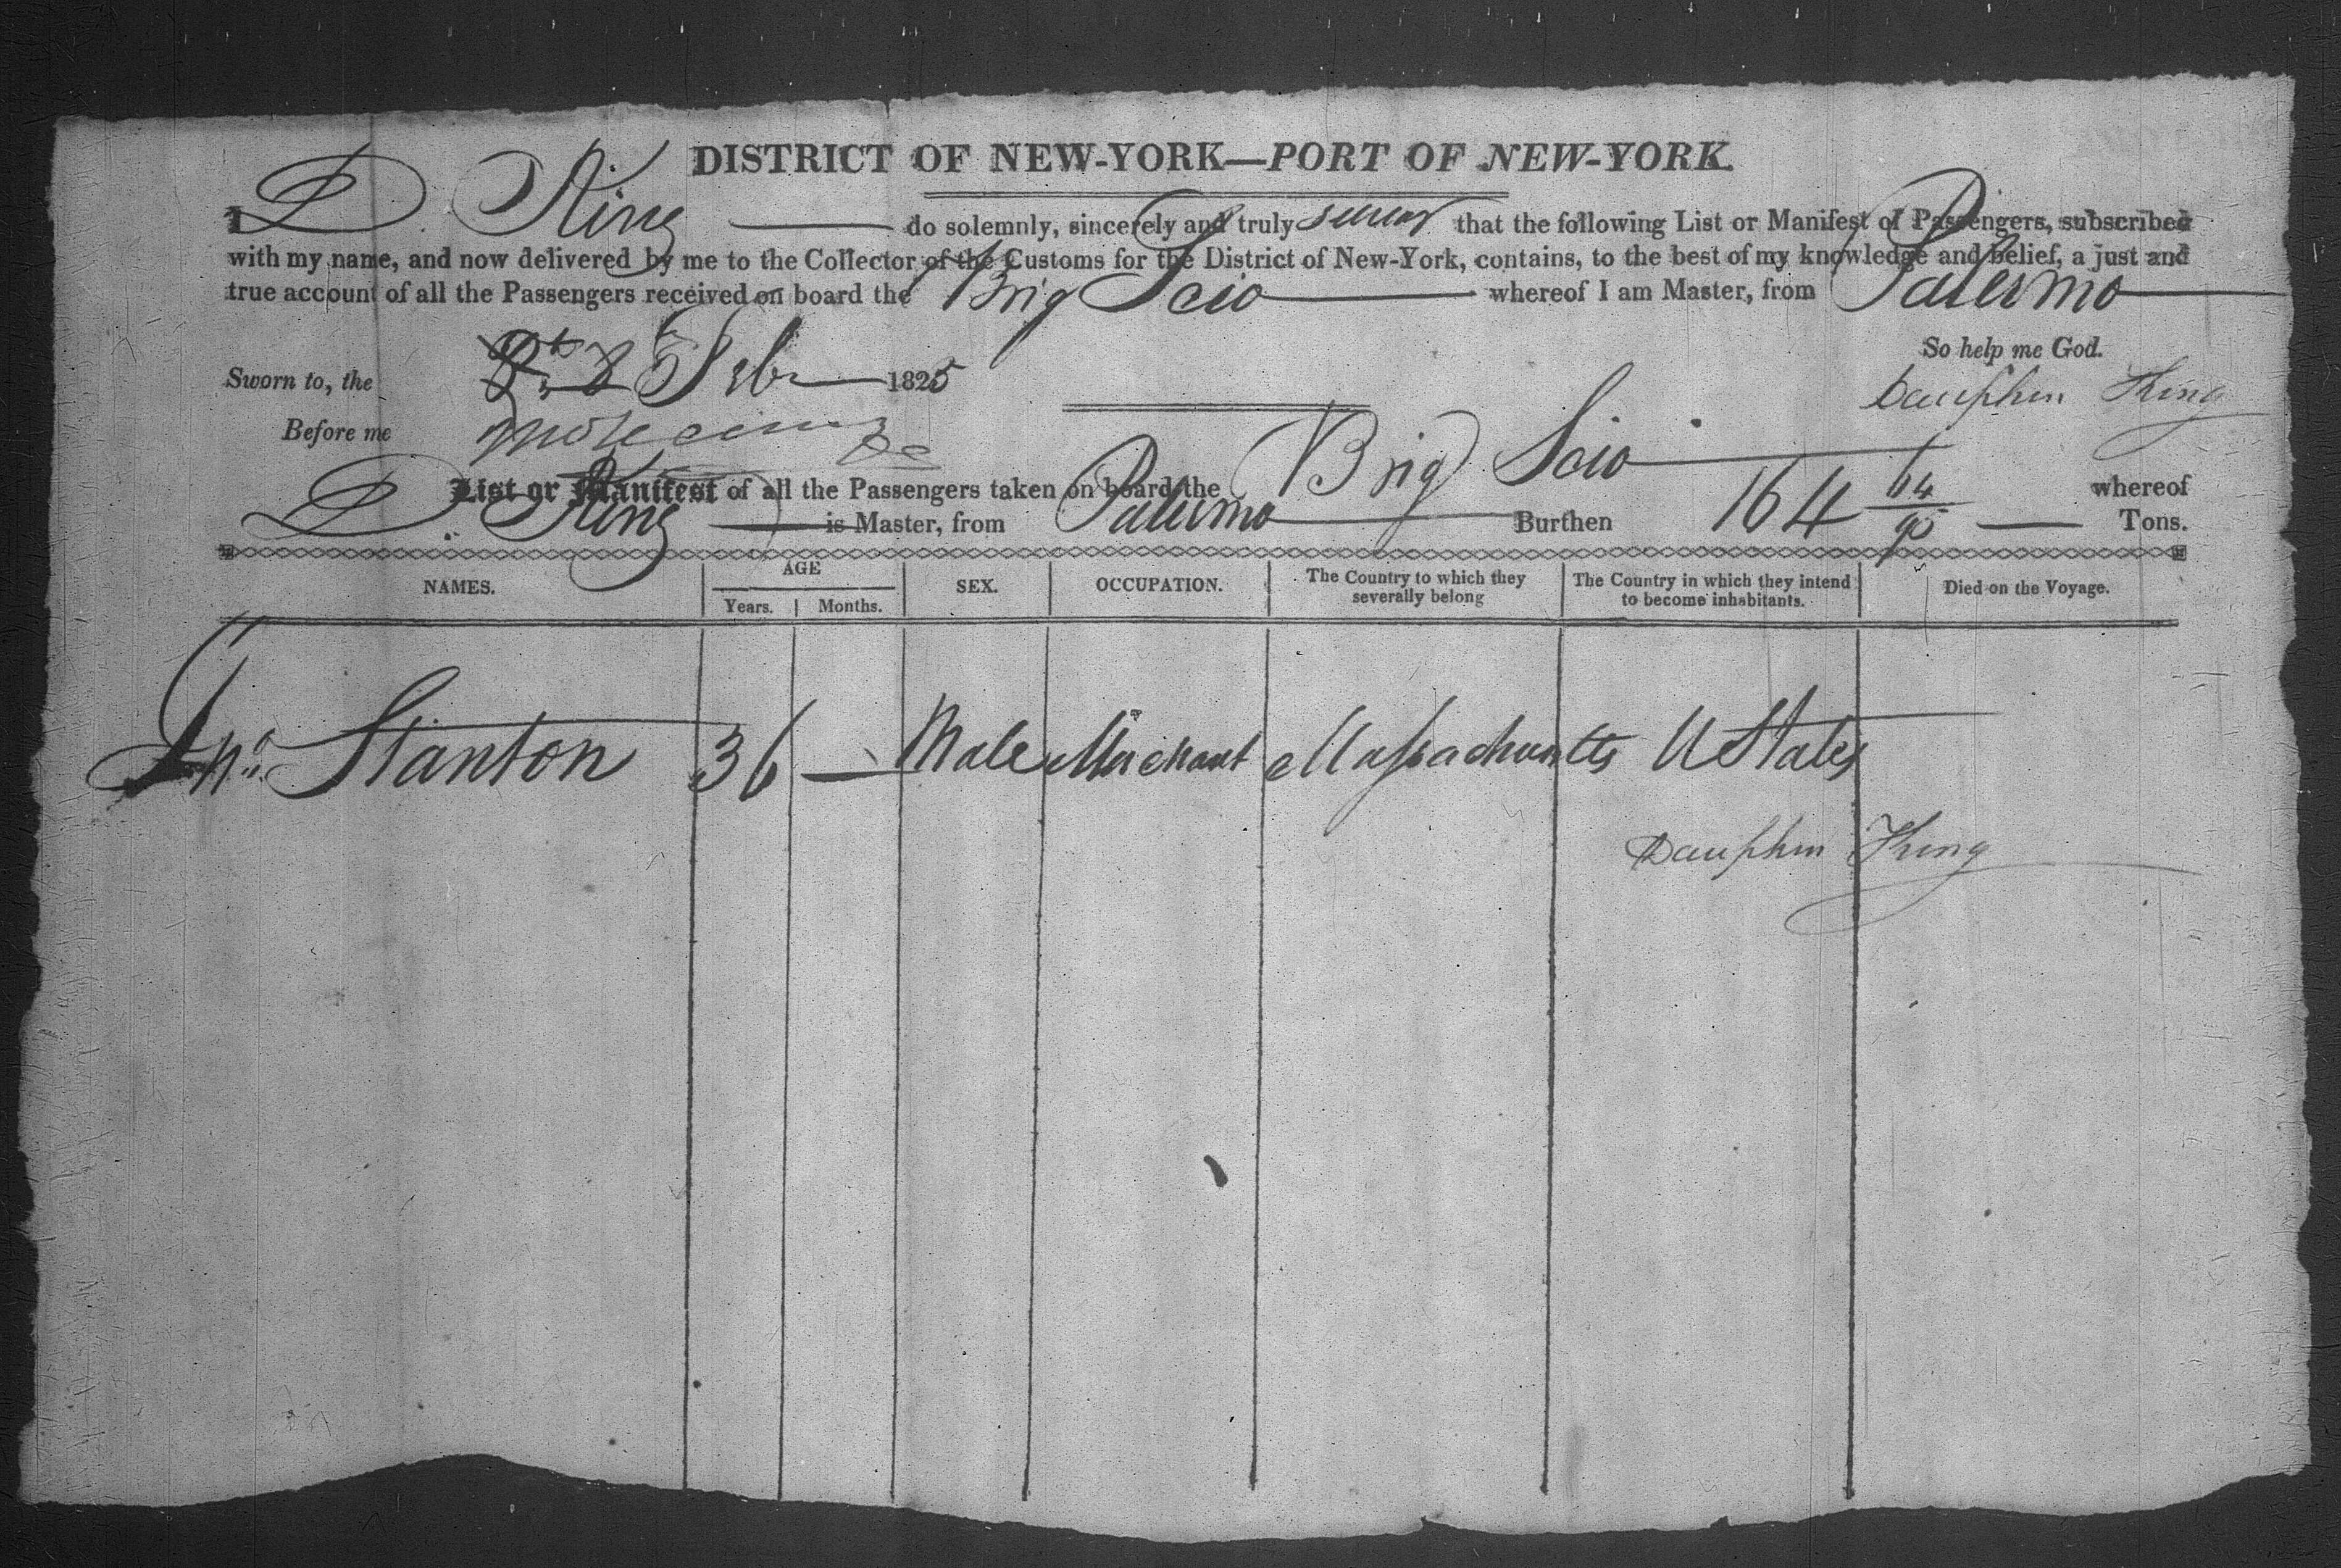 DISTRICT OF NEW-YORK—PORT OF NEW-YORK.
I D. King do solemnly, sincerely and truly swear that the following List or Manifest of Passengers, subscribed
with my name, and now delivered by me to the Collector of the Customs for the District of New-York, contains, to the best of my knowledge and belief, a just and
true account of all the Passengers received on board the Brig Scio whereof I am Master, from Palermo
So help me God.
Sworn to, the Feby 1825
Dauphin King
Before me
List or Manifest of all the Passengers taken on board the Brig Scio whereof
D. King is Master, from Palermo Burthen 164 64/95 Tons.
NAMES. AGE Years. Months. SEX. OCCUPATION. The Country to which they severally belong The Country in which they intend to become inhabitants. Died on the Voyage.
Jno. Stanton 36 — Male Merchant Massachusetts U States
Dauphin King